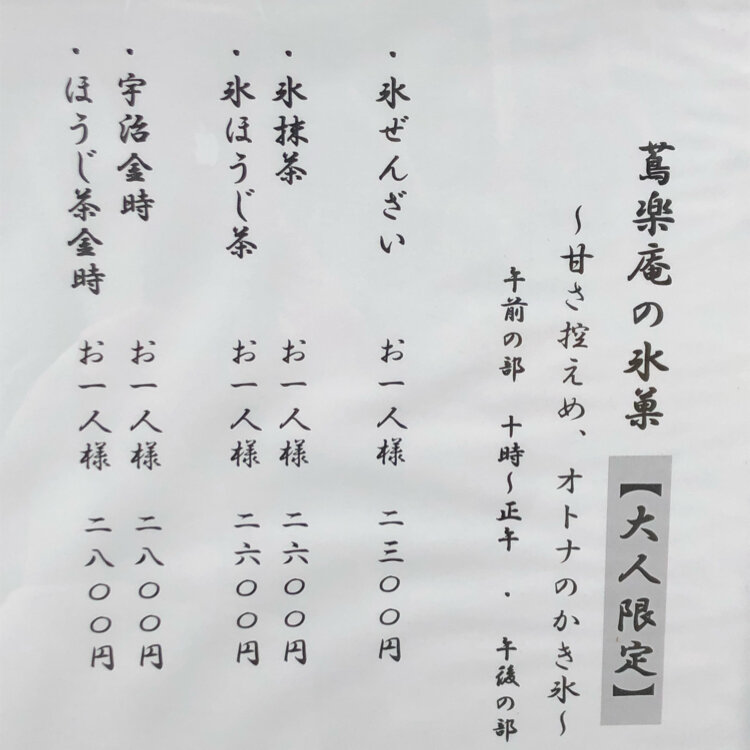 蔦楽庵の氷菓【大人限定】
～甘さ控えめ、オトナのかき氷～
午前の部 十時～正午 ・ 午後の部
・氷ぜんざい お一人様 二三〇〇円
・氷抹茶 お一人様 二六〇〇円
・氷ほうじ茶 お一人様 二六〇〇円
・宇治金時 お一人様 二八〇〇円
・ほうじ茶金時 お一人様 二八〇〇円